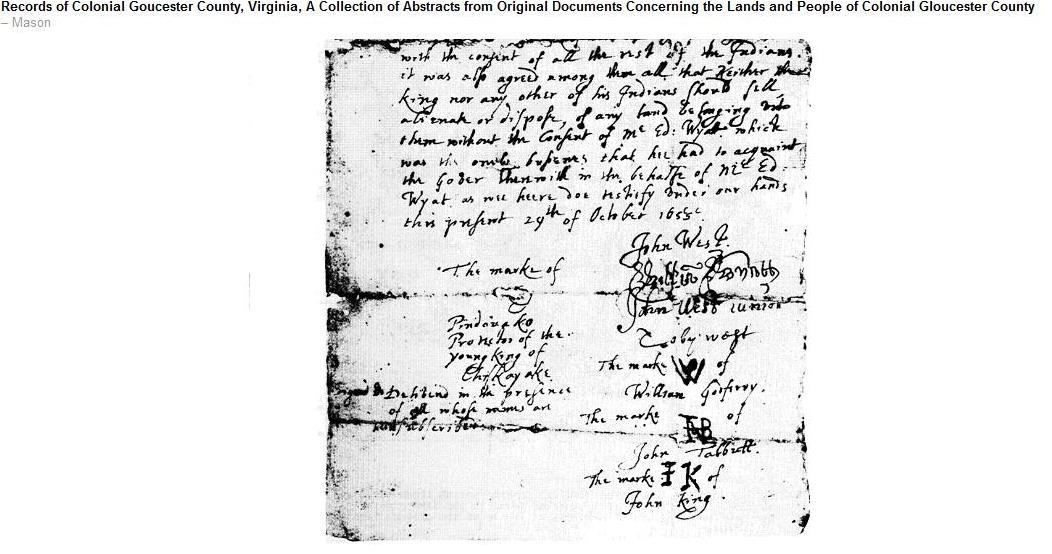 Records of Colonial Goucester County, Virginia, A Collection of Abstracts from Original Documents Concerning the Lands and People of Colonial Gloucester County
– Mason
with the consent of all the rest of the Indians.
it was also agreed among them all that Neither the
king nor any other of his Indians should sell
alienate or dispose, of any land belonging unto
them without the Consent of Mr Ed: Wyat which
was the onely busenes that hee had to acquaint
the Gover Therewith in the behalfe of Mr Ed
Wyat as wee heere doe testify under our hands
this present 29th of October 1655
John West
The marke of
John West iunior
Pindavako
Protector of the
young king of
Chiskayake
Toby West
The marke W of
William Godfrey.
Delivered in the presence
of all whose names are
subscribed
The marke of
John Tabbutt.
The marke I K of
John King.